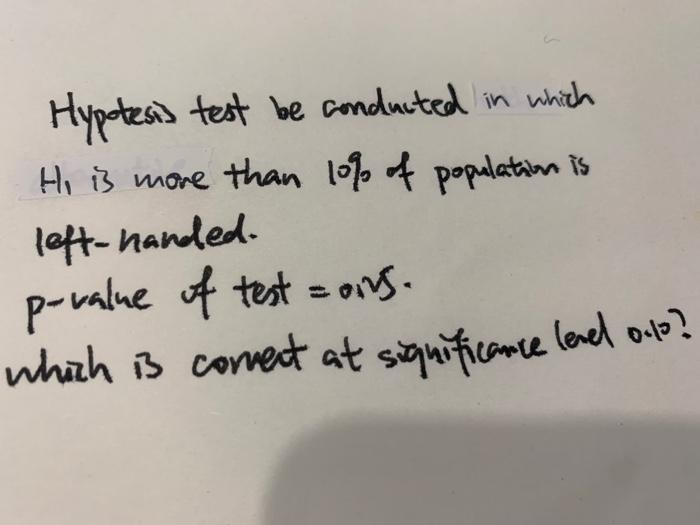 Hypotesis test be conducted in which
H₁ is more than 10% of population is
left-handed.
p-value of test = 0.25.
which is correct at significance level 0.10?